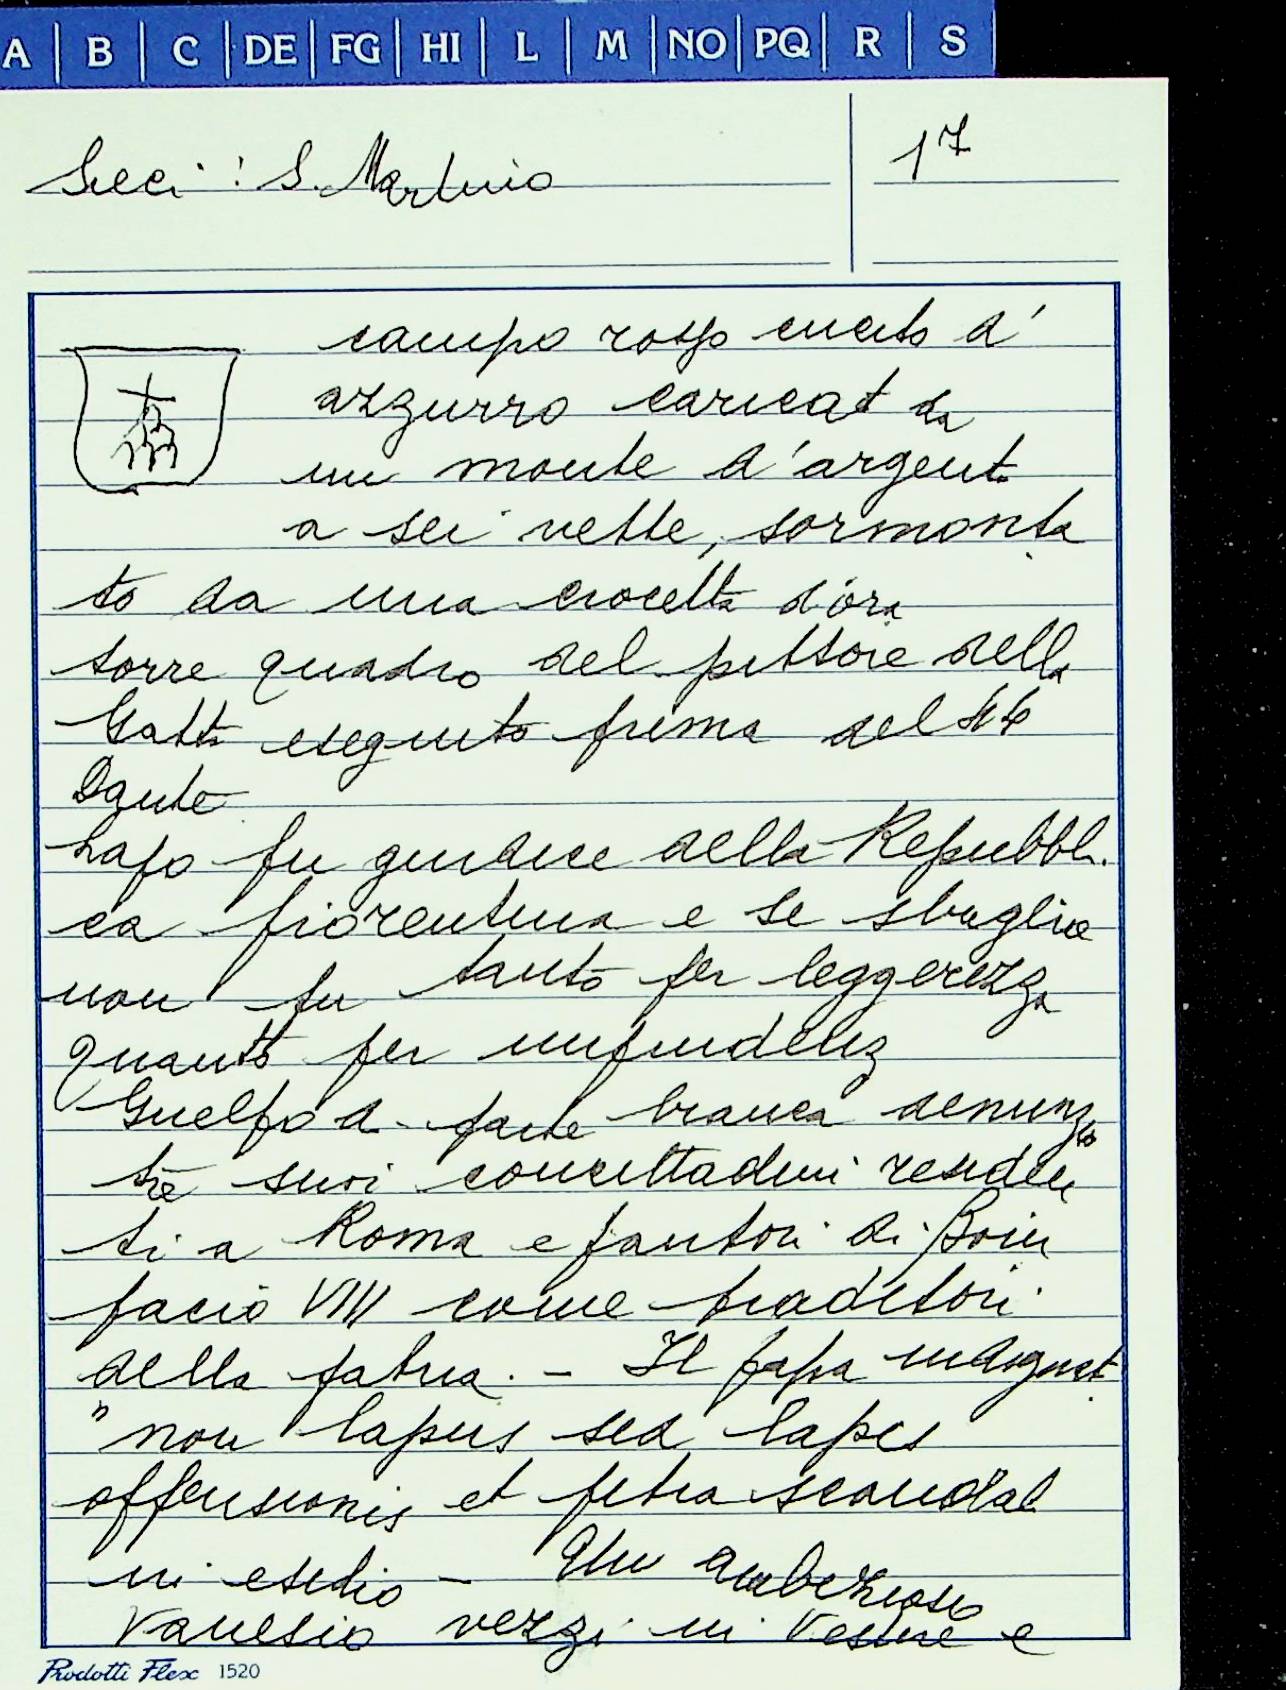 A B C DE FG HI L M NO PQ R S
Seeci : S. Martino
17
campo rosso cucito d'
azzurro caricat da
un monte d'argent
a sei vette, sormonta
to da una crocetta d'oro
torre quadro del pittore della
Gatta eseguito prima del
Dante
Lapo fu giudice della Repubbli.
ca fiorentina e se sbaglio
non fu tanto per leggerezza
quanto per
Guelfo d. parte bianca denunzio
tre suoi concittadini residen
ti a Roma e fautori di Boni
facio VIII come traditori
della patria. - Il papa indignat
"non lapus sed lapis
offensionis et petra scandal
in esilio - Un ambizioso
Vanesio vezzi in Veste e
Prodotti Flex 1520